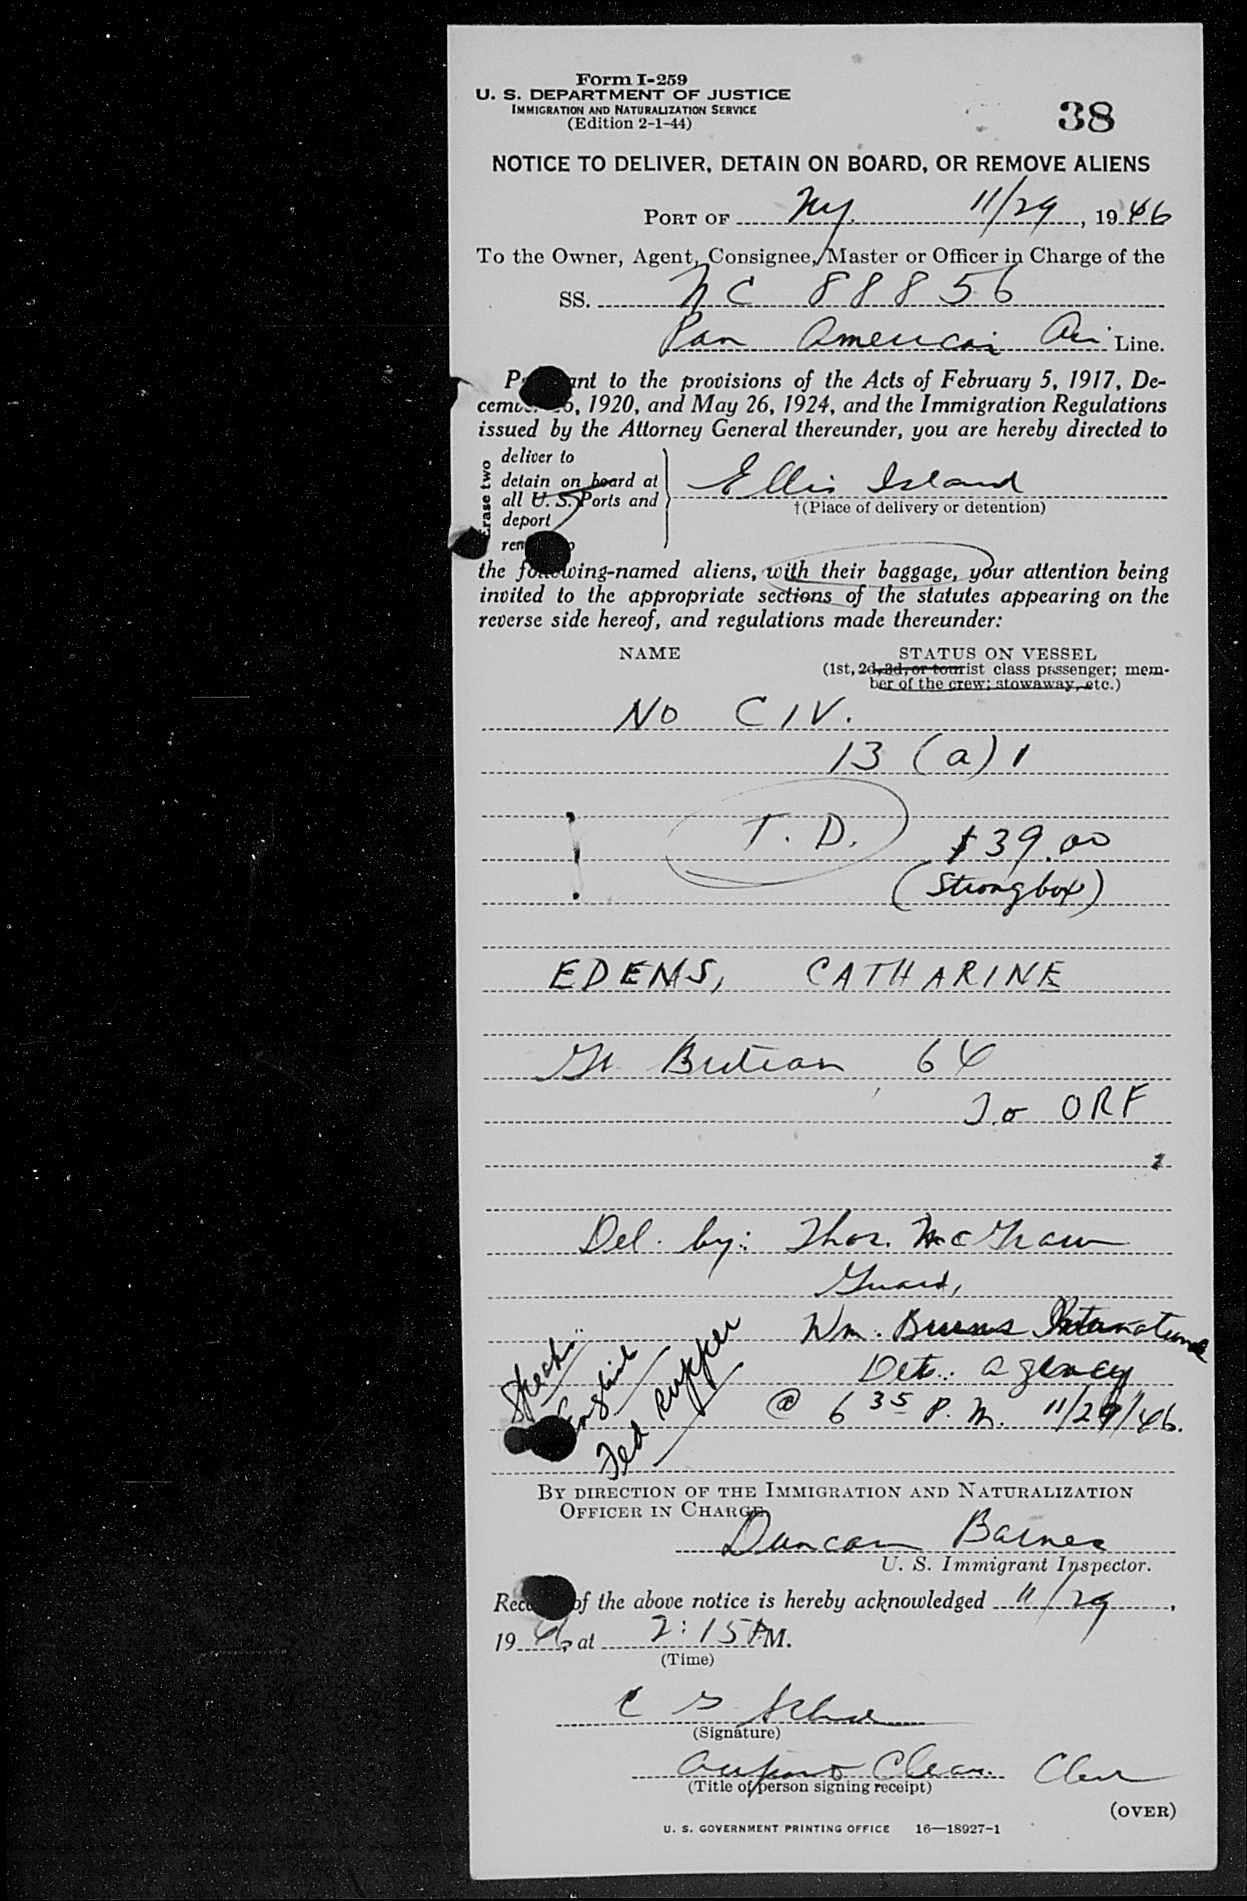 Form I-259
U. S. DEPARTMENT OF JUSTICE
IMMIGRATION AND NATURALIZATION SERVICE
(Edition 2-1-44)
38
NOTICE TO DELIVER, DETAIN ON BOARD, OR REMOVE ALIENS
PORT OF NY. 11/29, 1946
To the Owner, Agent, Consignee, Master or Officer in Charge of the
SS. NC 88856
Pan American Air Line.
P ant to the provisions of the Acts of February 5, 1917, De-
cem , 1920, and May 26, 1924, and the Immigration Regulations
issued by the Attorney General thereunder, you are hereby directed to
Erase two
deliver to
detain on board at
all U. S. Ports and
deport
Ellis Island
†(Place of delivery or detention)
the following-named aliens, with their baggage, your attention being
invited to the appropriate sections of the statutes appearing on the
reverse side hereof, and regulations made thereunder:
NAME STATUS ON VESSEL
(1st, 2d, 3d, or tourist class passenger; mem-
ber of the crew; stowaway, etc.)
NO CIV.
13 (a) 1
T. D. $39.00
(Strongbox)
EDEMS, CATHARINE
Gt Britian 64
To ORF
Del. by: Thos. McGraw
Guard,
Wm. Burns International
Det. Agency
@ 6 35 P. M. 11/29/46.
English
Fed supper
BY DIRECTION OF THE IMMIGRATION AND NATURALIZATION
OFFICER IN CHARGE
Duncan Barnes
U. S. Immigrant Inspector.
Rec of the above notice is hereby acknowledged 11/29,
1946, at 2:15 PM.
(Time)
C G
(Signature)
Airport Clear. Clerk
(Title of person signing receipt)
(OVER)
U. S. GOVERNMENT PRINTING OFFICE 16—18927-1